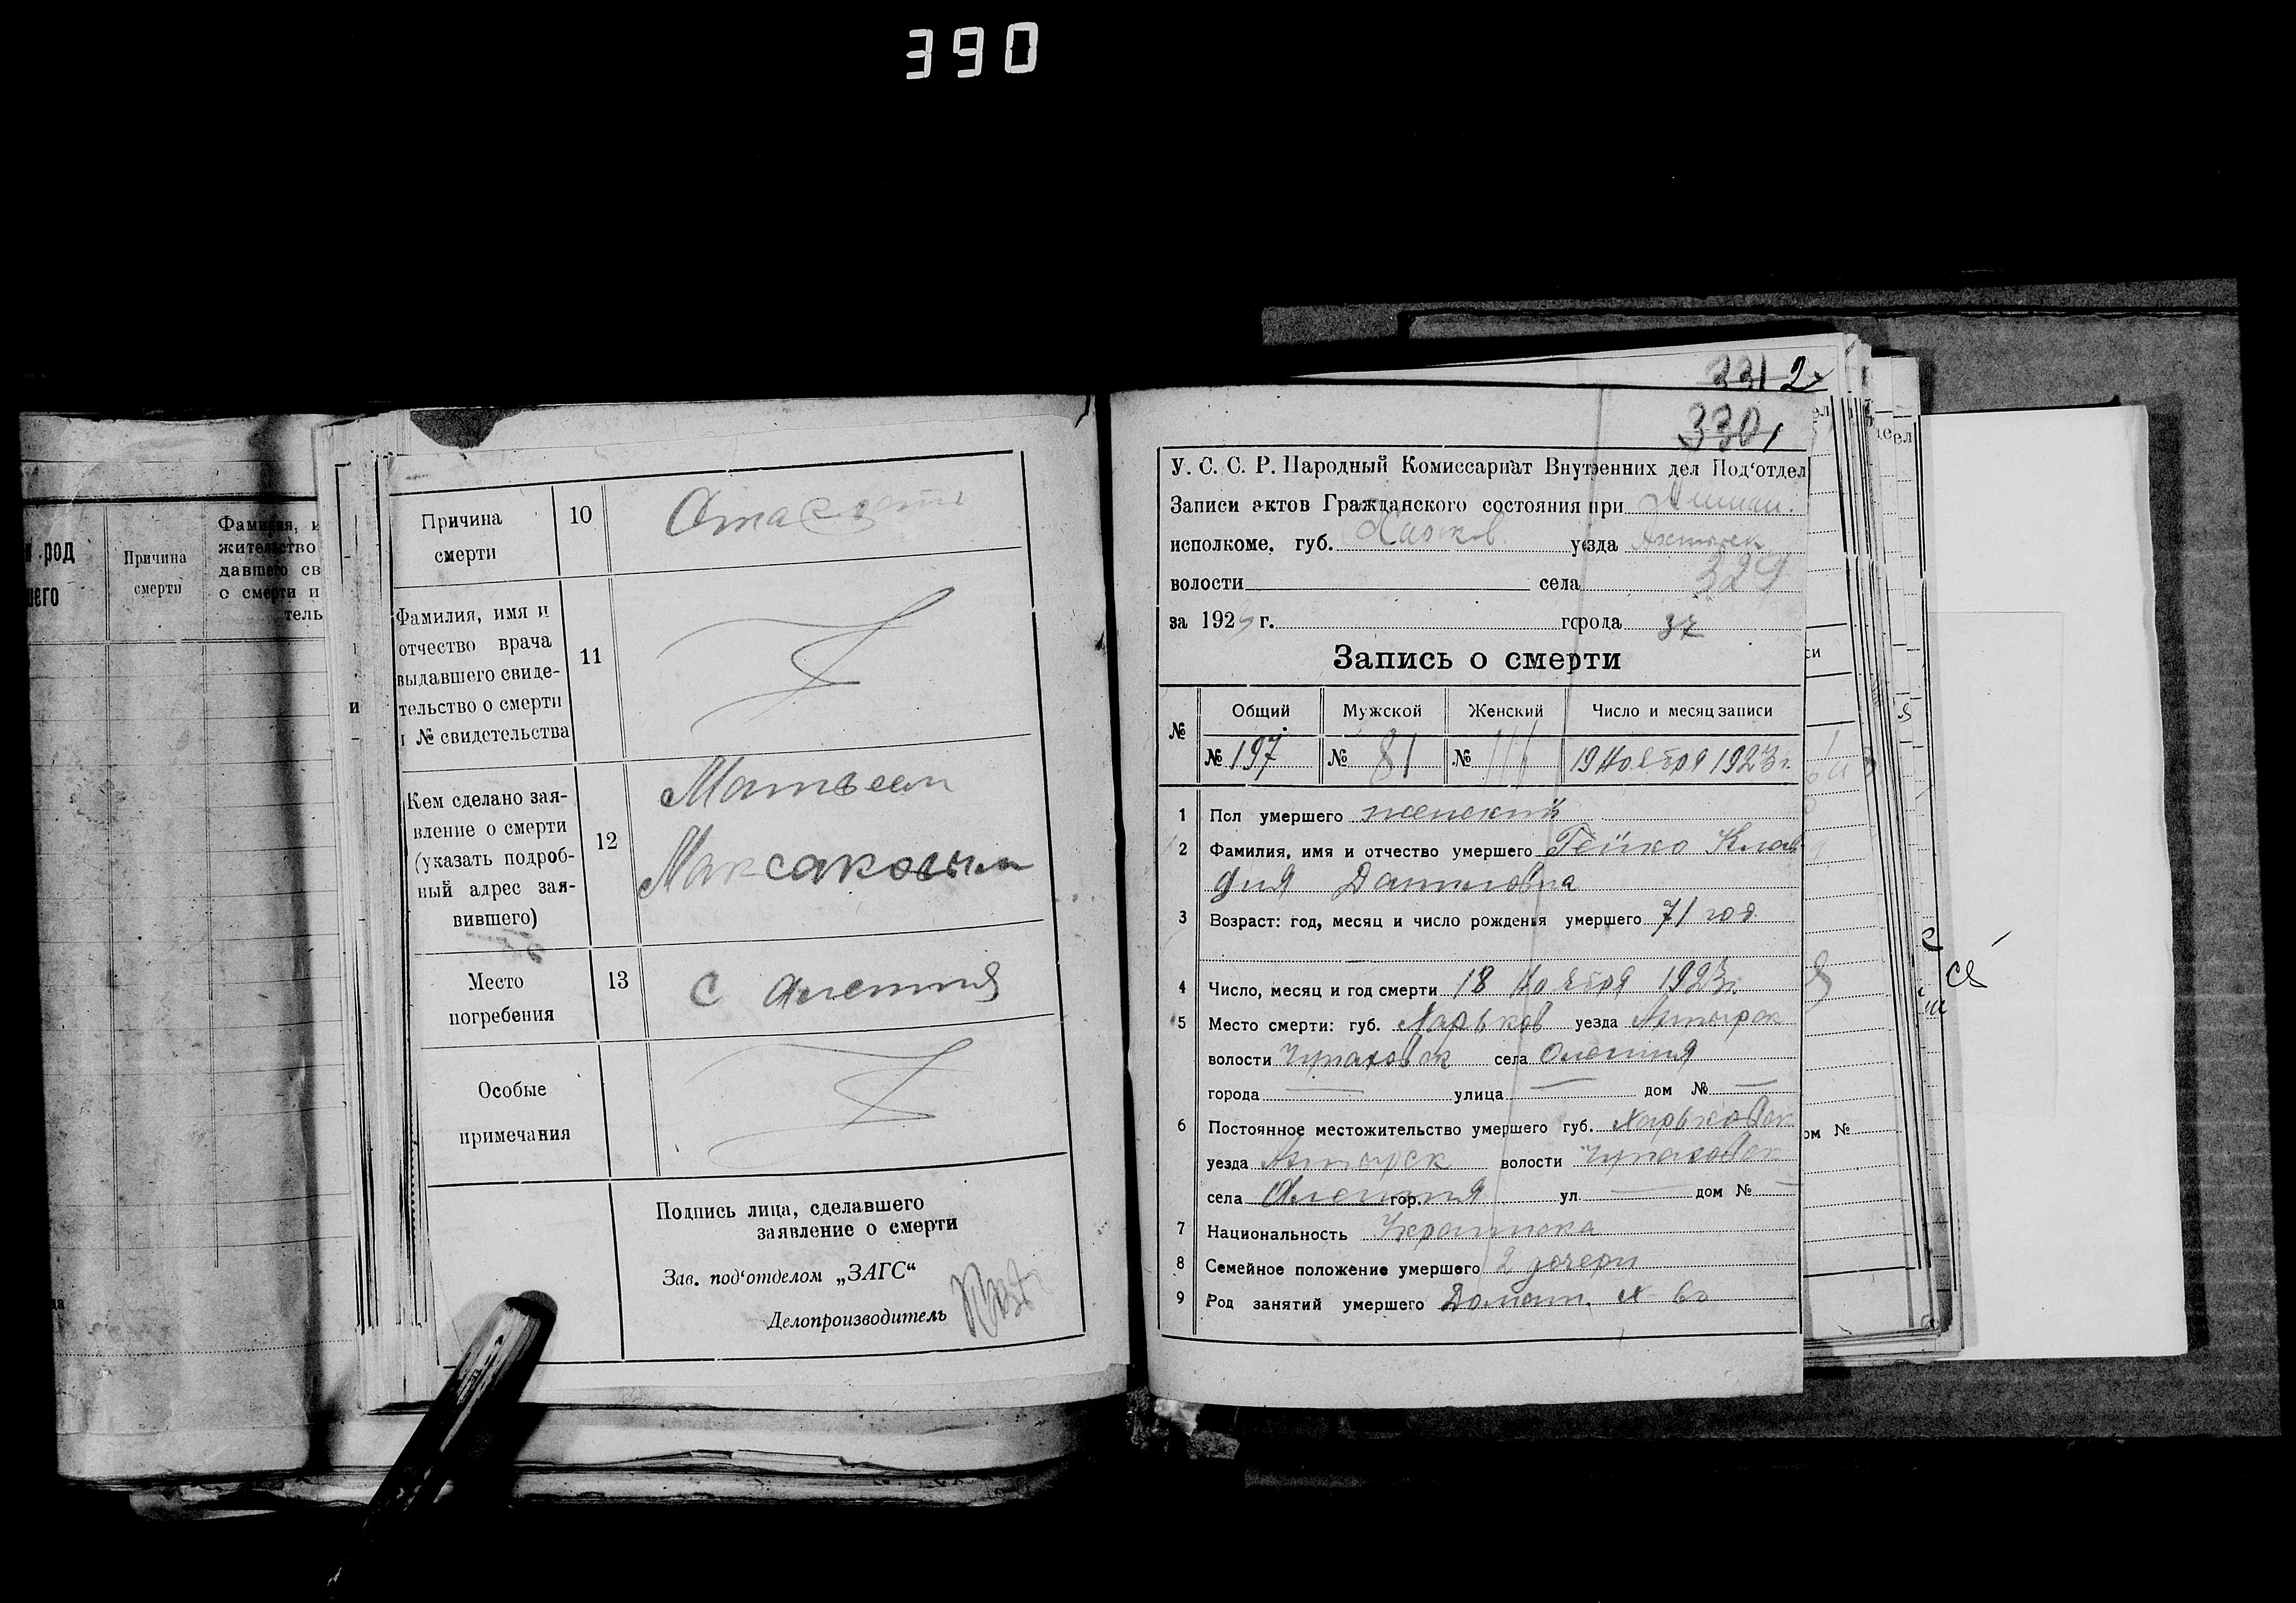 390
род
шего
Причина
смерти
Фамилия, и
жительство
давшего св
о смерти и
тель
Причина
смерти
10
От
Фамилия, имя и
отчество врача
выдавшего свиде-
тельство о смерти
и № свидетельства
11
Кем сделано зая-
вление о смерти
(указать подроб-
ный адрес зая-
вившего)
12
Матвеем
Максаковым
Место
погребения
13
с Алешня
Особые
примечания
Подпись лица, сделавшего
заявление о смерти
Зав. под‘отделом „ЗАГС“
Делопроизводитель
331 2
330 1
У. С. С. Р. Народный Комиссариат Внутренних дел Под‘отдел
Записи актов Гражданского состояния при
исполкоме. губ. Харков. уезда Ахтырск
329
волости села
за 1923 г. города 37
Запись о смерти
№ Общий Мужской Женский Число и месяц записи
№ 197 № 81 № 19 Ноября 1923 г.
1 Пол умершего женский
2 Фамилия, имя и отчество умершего Гейко Клав
дия Даниловна
3 Возраст: год, месяц и число рождения умершего 71 год
4 Число, месяц и год смерти 18 Ноября 1923 г.
5 Место смерти: губ. Харьков уезда Ахтырск
волости Чупаховск села Олешня
города — улица — дом № —
6 Постоянное местожительство умершего губ. Харьковск
уезда Ахтырск волости Чупаховск
села Алешня гор. ул — дом № —
7 Национальность Украинка
8 Семейное положение умершего 2 дочери
9 Род занятий умершего Домашн. х-во